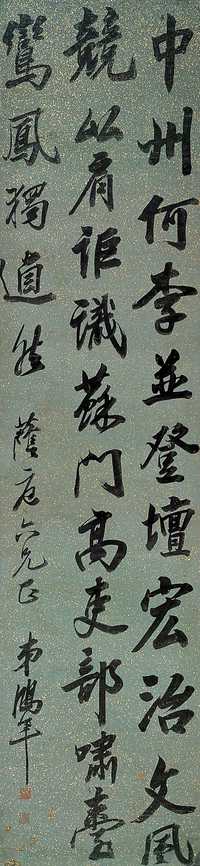 中州何李並登壇宏治文風
競比肩詎識蘇門高吏部嘯臺
鸞鳳獨逌然
蔭庭六兄正
弟鵬年